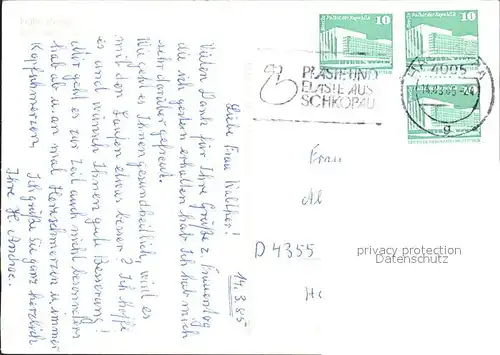 Halle (Saale)
14.3.85
Liebe Frau Walther!
Vielen Dank für Ihre Grüße z. Frauentag
die ich gestern erhalten hab. Ich hab mich
sehr darüber gefreut.
Wie geht es Ihnen gesundheitlich, wird es
mit den Laufen etwas besser? Ich hoffe
es und wünsch Ihnen gute Besserung!
Mir geht es zur Zeit auch nicht besonders
hab ab u. an mal Herzschmerzen u. immer
Kopfschmerzen.
Ich grüße Sie ganz herzlich
Ihre H.
10
Palast der Republik
10
Palast der Republik
PLASTE UND
ELASTE AUS
SCHKOPAU
4005
DEUTSCHE DEMOKRATISCHE REPUBLIK
g
Frau
Al
D 4355
privacy protection
Datenschutz